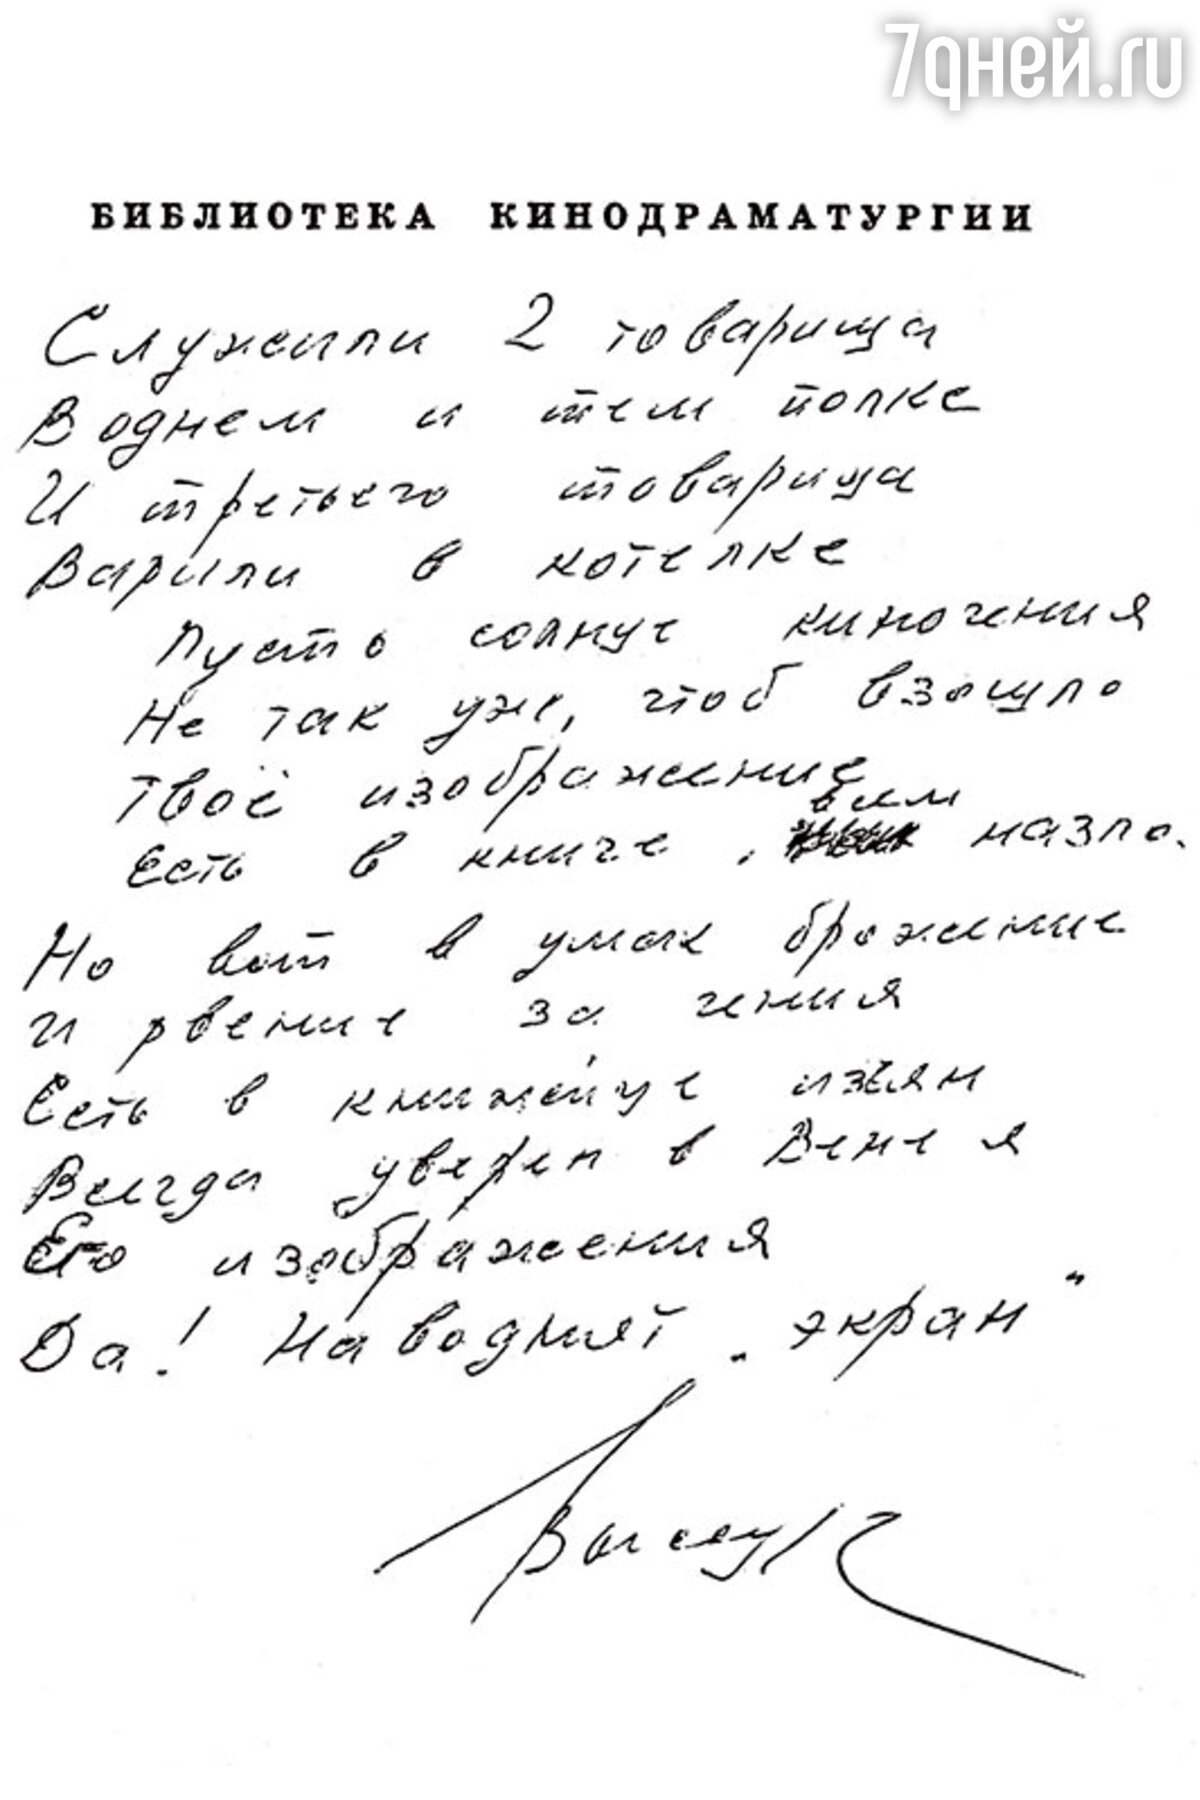 7дней.ru
БИБЛИОТЕКА КИНОДРАМАТУРГИИ
Служили 2 товарища
В однем и тем полке
И третьего товарища
Варили в котелке
Пусть солнце киногения
Не так уже, чтоб взошло
Твоё изображение
Есть в книге, всем назло.
Но вот в умах брожение
И рвение за гения
Есть в книжице изъян
Всегда уверен в Вене я
Его изображения
Да! Наводнят „экран"